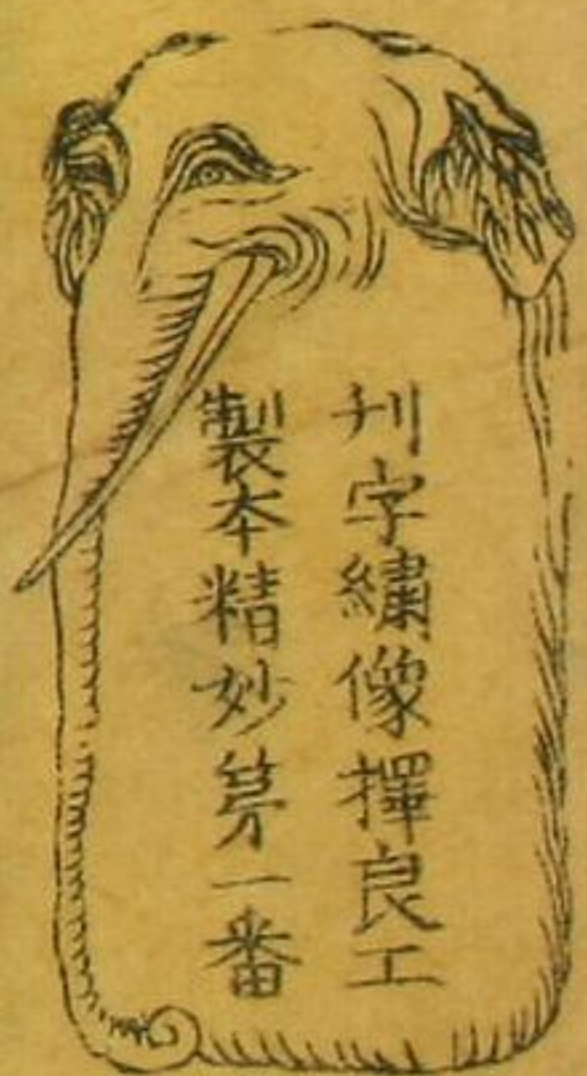 刋字繡像擇良工
製本精妙苐一番